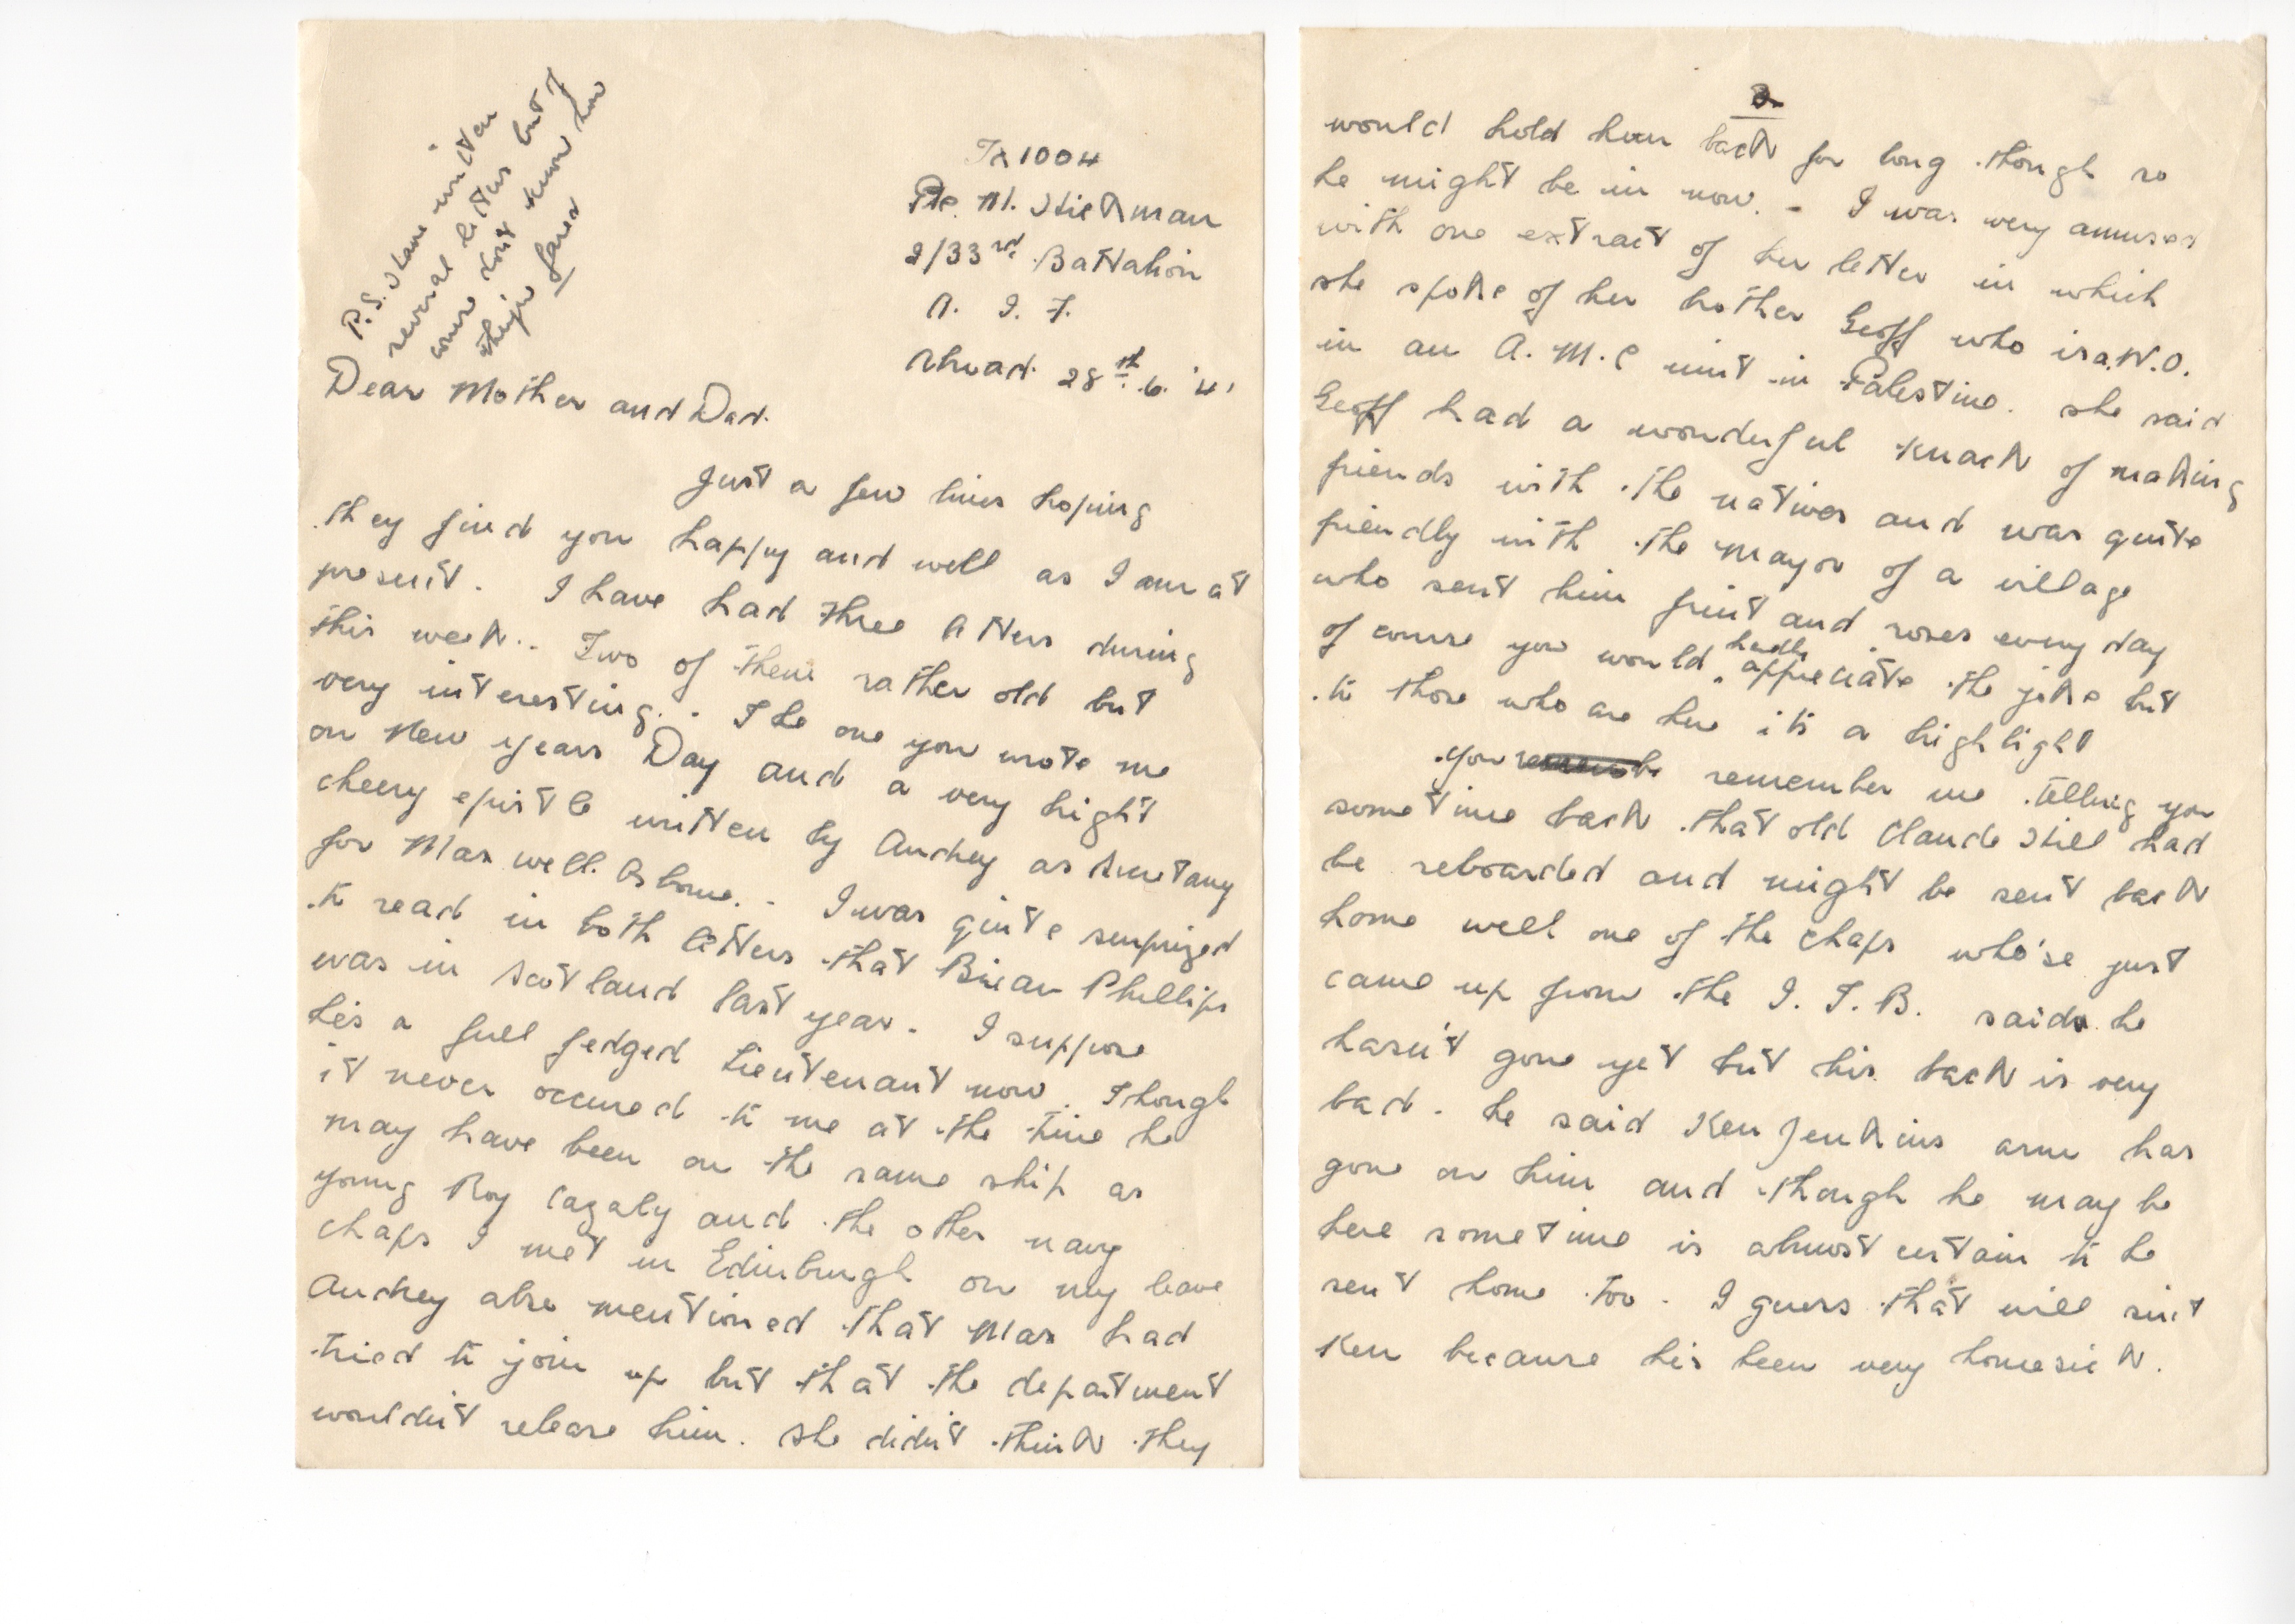 P.S. I have written
several letters but of
course don't know how
they've fared
Tx 1004
Pte. M. Hickman
2/33rd Battalion
A. I. F.
Abroad. 28th. 6. '41
Dear Mother and Dad.
Just a few lines hoping
they find you happy and well as I am at
present. I have had three letters during
this week. Two of them rather old but
very interesting. - The one you wrote me
on New Years Day and a very bright
cheery epistle written by Audrey as secretary
for Maxwell Osborne. - I was quite surprized
to read in both letters that Brian Phillips
was in Scotland last year. I suppose
he's a full fedged Lieutenant now. Though
it never occured to me at the time he
may have been on the same ship as
young Roy Cazaly and the other navy
chaps I met in Edinburgh on my leave
Audrey also mentioned that Max had
tried to join up but that the department
wouldn't release him. She didn't think they
2
would hold him back for long though so
he might be in now. - I was very amused
with one extract of her letter in which
she spoke of her brother Geoff who is a W.O.
in an A.M.C unit in Palestine. She said
Geoff had a wonderful knack of making
friends with the natives and was quite
friendly with the mayor of a village
who sent him fruit and roses every day
of course you would hardly appreciate the joke but
to those who are here it's a highlight
You remember me telling you
sometime back that old Claude Hill had
be reboarded and might be sent back
home well one of the chaps who'se just
came up from the I.T.B. said he
hasn't gone yet but his back is very
bad. He said Ken Jenkins arm has
gone on him and though he may be
here sometime is almost certain to be
sent home too. I guess that will suit
Ken because he's been very homesick.